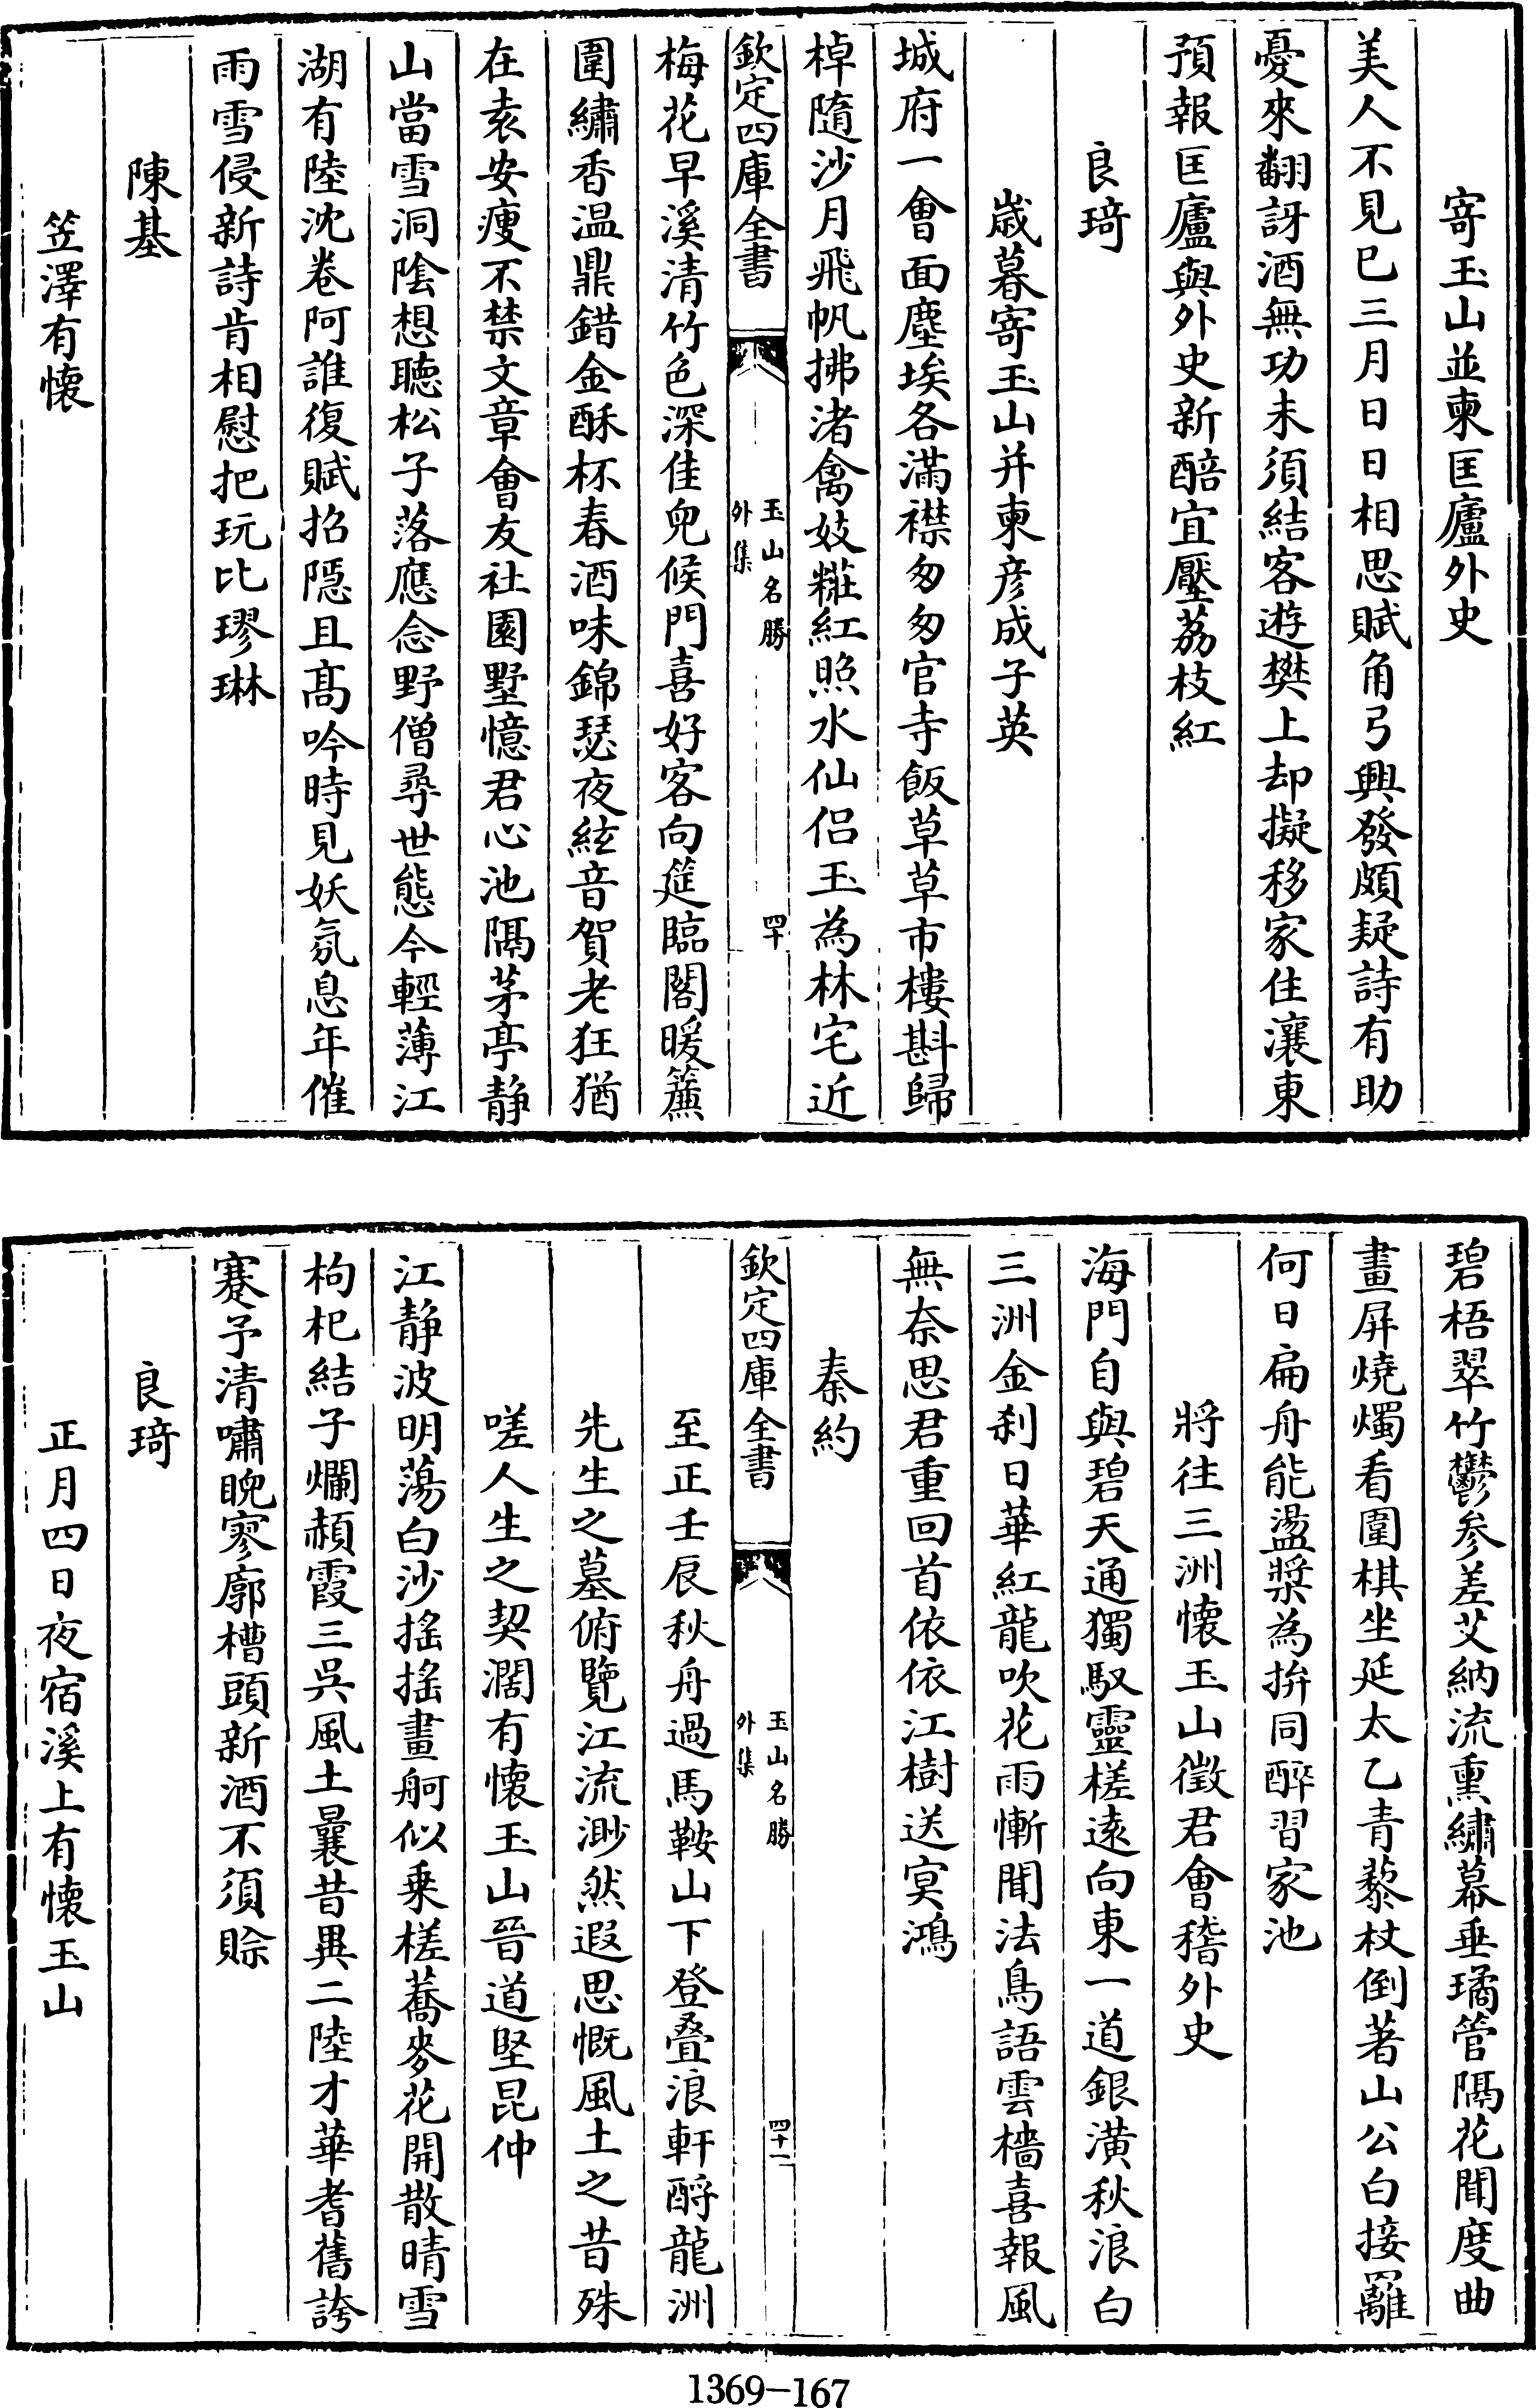 寄玉山並柬匡廬外史
美人不見已三月日日相思賦角弓興發頗疑詩有助
憂來翻訝酒無功未須結客遊樊上却擬移家住瀼東
預報匡廬與外史新醅宜壓荔枝紅
良琦
歳暮寄玉山并柬彦成子英
城府一會面塵埃各滿襟匆匆官寺飯草草市樓斟歸
棹隨沙月飛帆拂渚禽妓糚紅照水仙侣玉為林宅近
欽定四庫全書
玉山名勝外集
四十
梅花早溪清竹色深佳兒候門喜好客向筵臨閣暖簾
圍繡香温鼎錯金酥杯春酒味錦瑟夜絃音賀老狂猶
在袁安瘦不禁文章會友社園墅憶君心池隔茅亭静
山當雪洞隂想聴松子落應念野僧尋世態今輕薄江
湖有陸沈卷阿誰復賦招隠且髙吟時見妖氛息年催
雨雪侵新詩肯相慰把玩比璆琳
陳基
笠澤有懷
碧梧翠竹鬱参差艾納流熏繡幕垂璚管隔花聞度曲
畫屏燒燭看圍棋坐延太乙青藜杖倒著山公白接䍦
何日扁舟能盪槳為拚同醉習家池
將往三洲懷玉山徵君會稽外史
海門自與碧天通獨馭靈槎逺向東一道銀潢秋浪白
三洲金刹日華紅龍吹花雨慚聞法鳥語雲檣喜報風
無奈思君重回首依依江樹送㝠鴻
秦約
欽定四庫全書
玉山名勝外集
四十一
至正壬辰秋舟過馬鞍山下登叠浪軒酹龍洲
先生之墓俯覽江流渺然遐思慨風土之昔殊
嗟人生之契濶有懷玉山晉道堅昆仲
江静波明蕩白沙揺揺畫舸似乗槎蕎麥花開散晴雪
枸杞結子爛赬霞三吳風土曩昔異二陸才華耆舊誇
蹇予清嘯睨寥廓槽頭新酒不須賒
良琦
正月四日夜宿溪上有懷玉山
1369-167